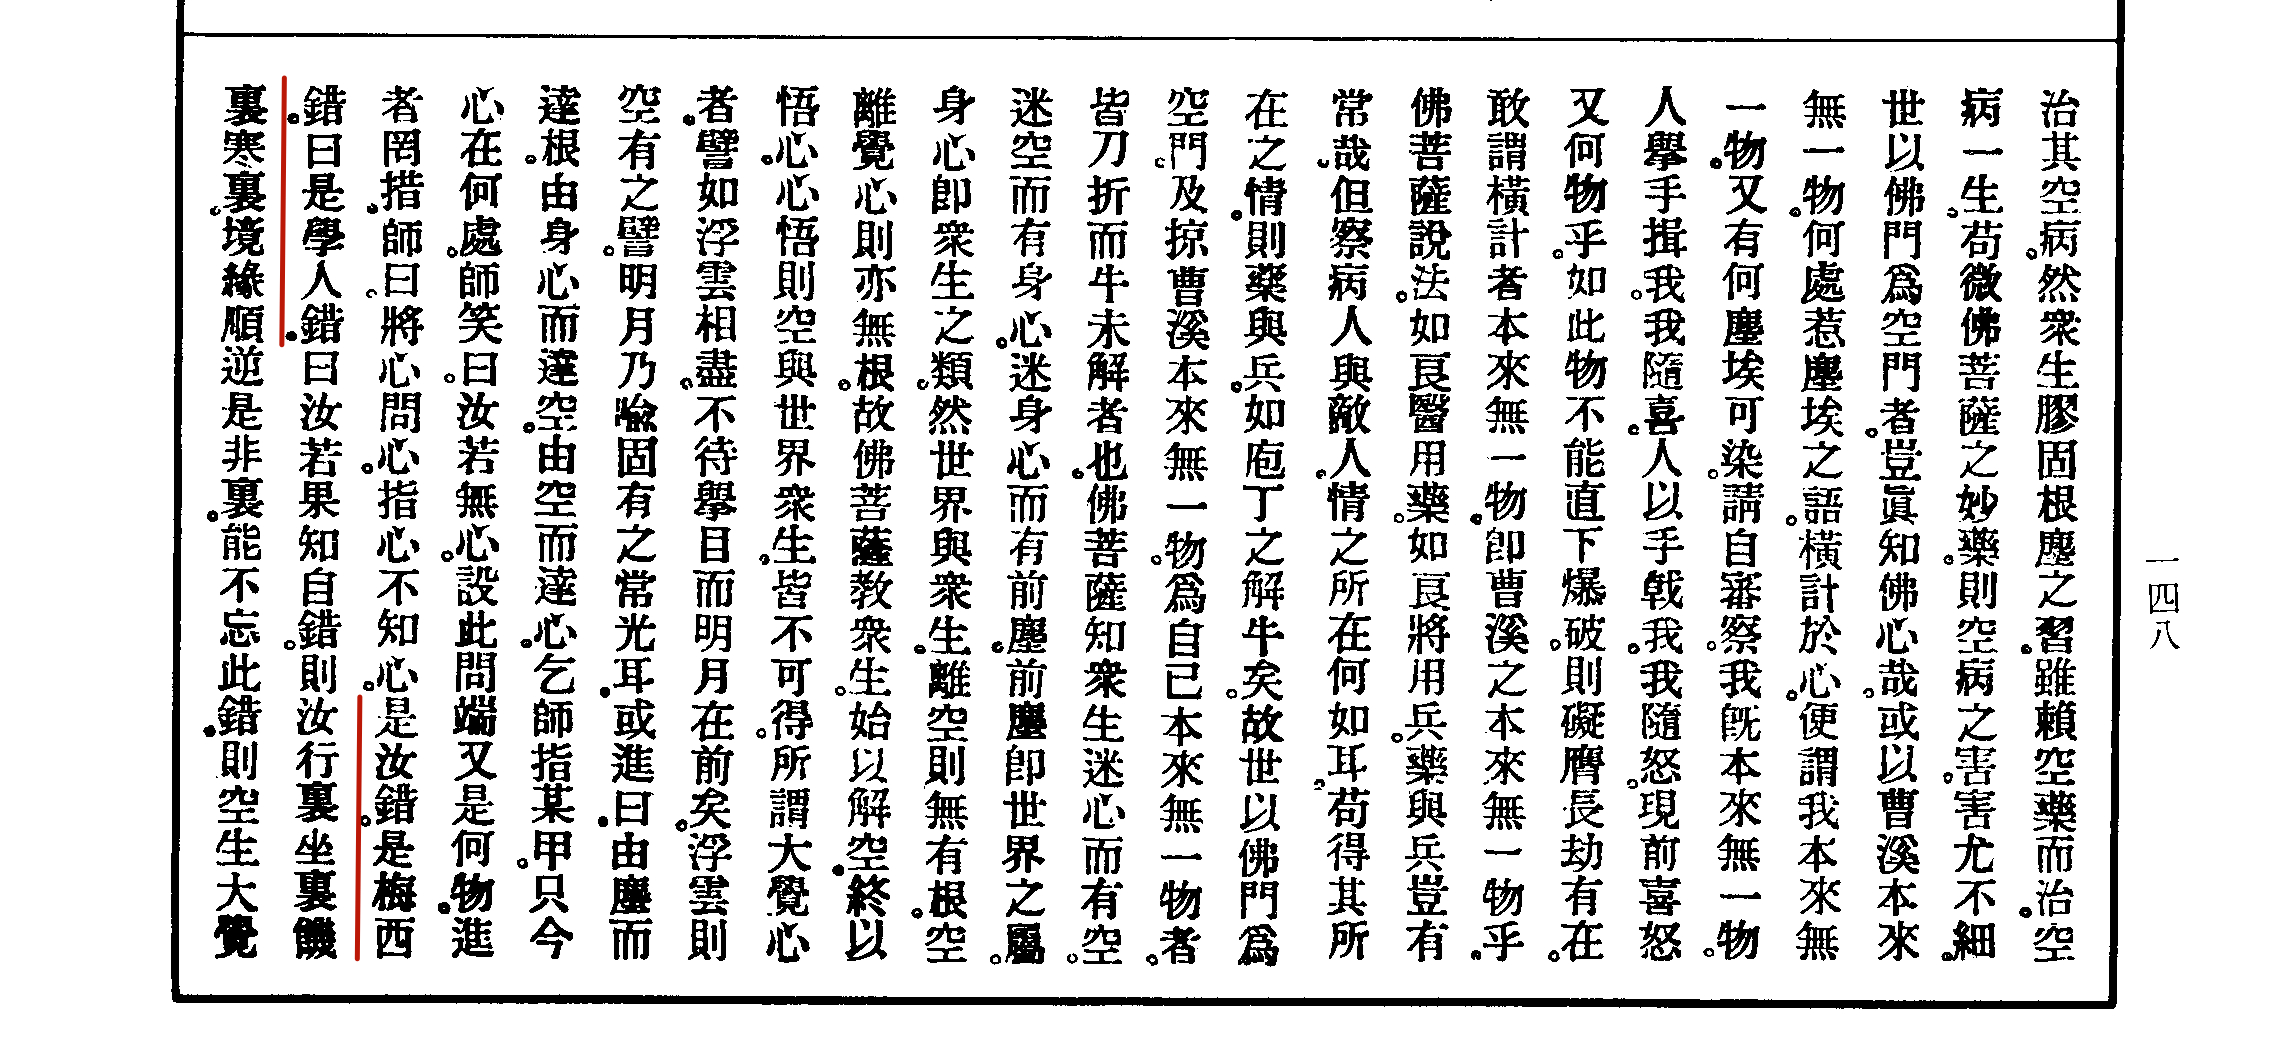 治其空病。然衆生膠固根塵之習。雖賴空藥而治。空
病一生。苟微佛菩薩之妙藥。則空病之害。害尤不細。
世以佛門爲空門者。豈眞知佛心哉。或以曹溪本來
無一物。何處惹塵埃之語。橫計於心。便謂我本來無
一物。又有何塵埃可染。請自審察。我旣本來無一物。
人擧手揖我。我隨喜。人以手戟我。我隨怒。現前喜怒
又何物乎。如此物不能直下爆破。則礙膺長劫有在。
敢謂橫計者本來無一物。卽曹溪之本來無一物乎。
佛菩薩說法。如良醫用藥。如良將用兵。藥與兵豈有
常哉。但察病人與敵人。情之所在何如耳。苟得其所
在之情。則藥與兵。如庖丁之解牛矣。故世以佛門爲
空門。及掠曹溪本來無一物。爲自己本來無一物者。
皆刀折而牛未解者也。佛菩薩知衆生迷心而有空。
迷空而有身心。迷身心而有前塵。前塵卽世界之屬。
身心卽衆生之類。然世界與衆生。離空則無有根。空
離覺心則亦無根。故佛菩薩教衆生。始以解空。終以
悟心。心悟則空與世界衆生。皆不可得。所謂大覺心
者。譬如浮雲相盡。不待擧目而明月在前矣。浮雲則
空有之譬。明月乃喩固有之常光耳。或進曰。由塵而
達根。由身心而達空。由空而達心。乞師指某甲。只今
心在何處。師笑曰。汝若無心。設此問端。又是何物。進
者罔措。師曰。將心問心。指心不知心。是汝錯。是梅西
錯。曰是學人錯。曰汝若果知自錯。則汝行裏坐裏饑
裏寒裏。境緣順逆是非裏。能不忘此錯。則空生大覺
一四八